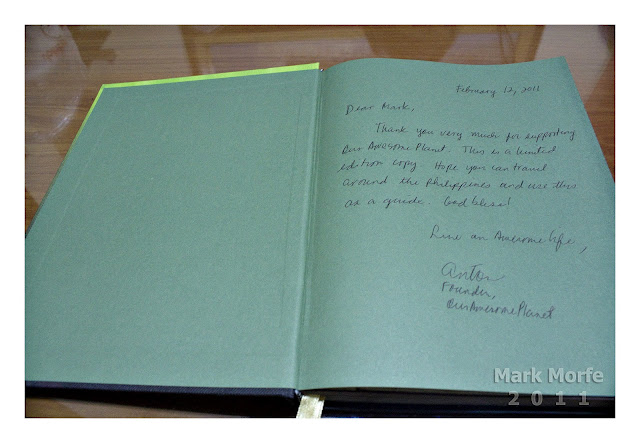 February 12, 2011
Dear Mark,
Thank you very much for supporting
Our Awesome Planet. This is a limited
edition copy. Hope you can travel
around the Philippines and use this
as a guide. God bless!
Live an Awesome life,
Anton
Founder,
OurAwesomePlanet
Mark Morfe
2011